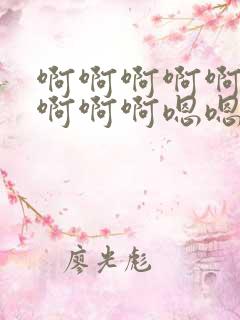 啊啊啊啊啊
啊啊啊嗯嗯
廖光彪